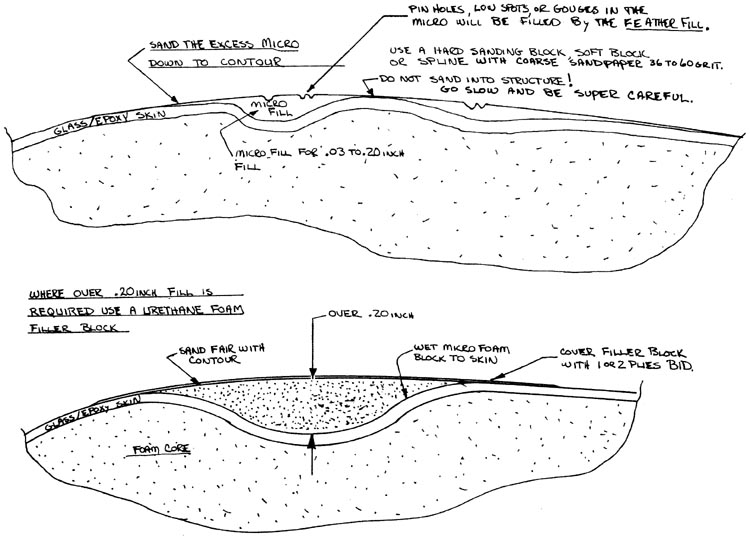 PIN HOLES, LOW SPOTS, OR GOUGES IN THE
MICRO WILL BE FILLED BY THE FEATHER FILL.
SAND THE EXCESS MICRO
DOWN TO CONTOUR
USE A HARD SANDING BLOCK, SOFT BLOCK
OR SPLINE WITH COARSE SANDPAPER 36 TO 60 GRIT.
DO NOT SAND INTO STRUCTURE!
GO SLOW AND BE SUPER CAREFUL.
MICRO
FILL
GLASS/EPOXY SKIN
MICRO FILL FOR .03 TO .20 INCH
FILL
WHERE OVER .20 INCH FILL IS
REQUIRED USE A URETHANE FOAM
FILLER BLOCK
OVER .20 INCH
SAND FAIR WITH
CONTOUR
WET MICRO FOAM
BLOCK TO SKIN
COVER FILLER BLOCK
WITH 1 OR 2 PLIES BID.
GLASS/EPOXY SKIN
FOAM CORE